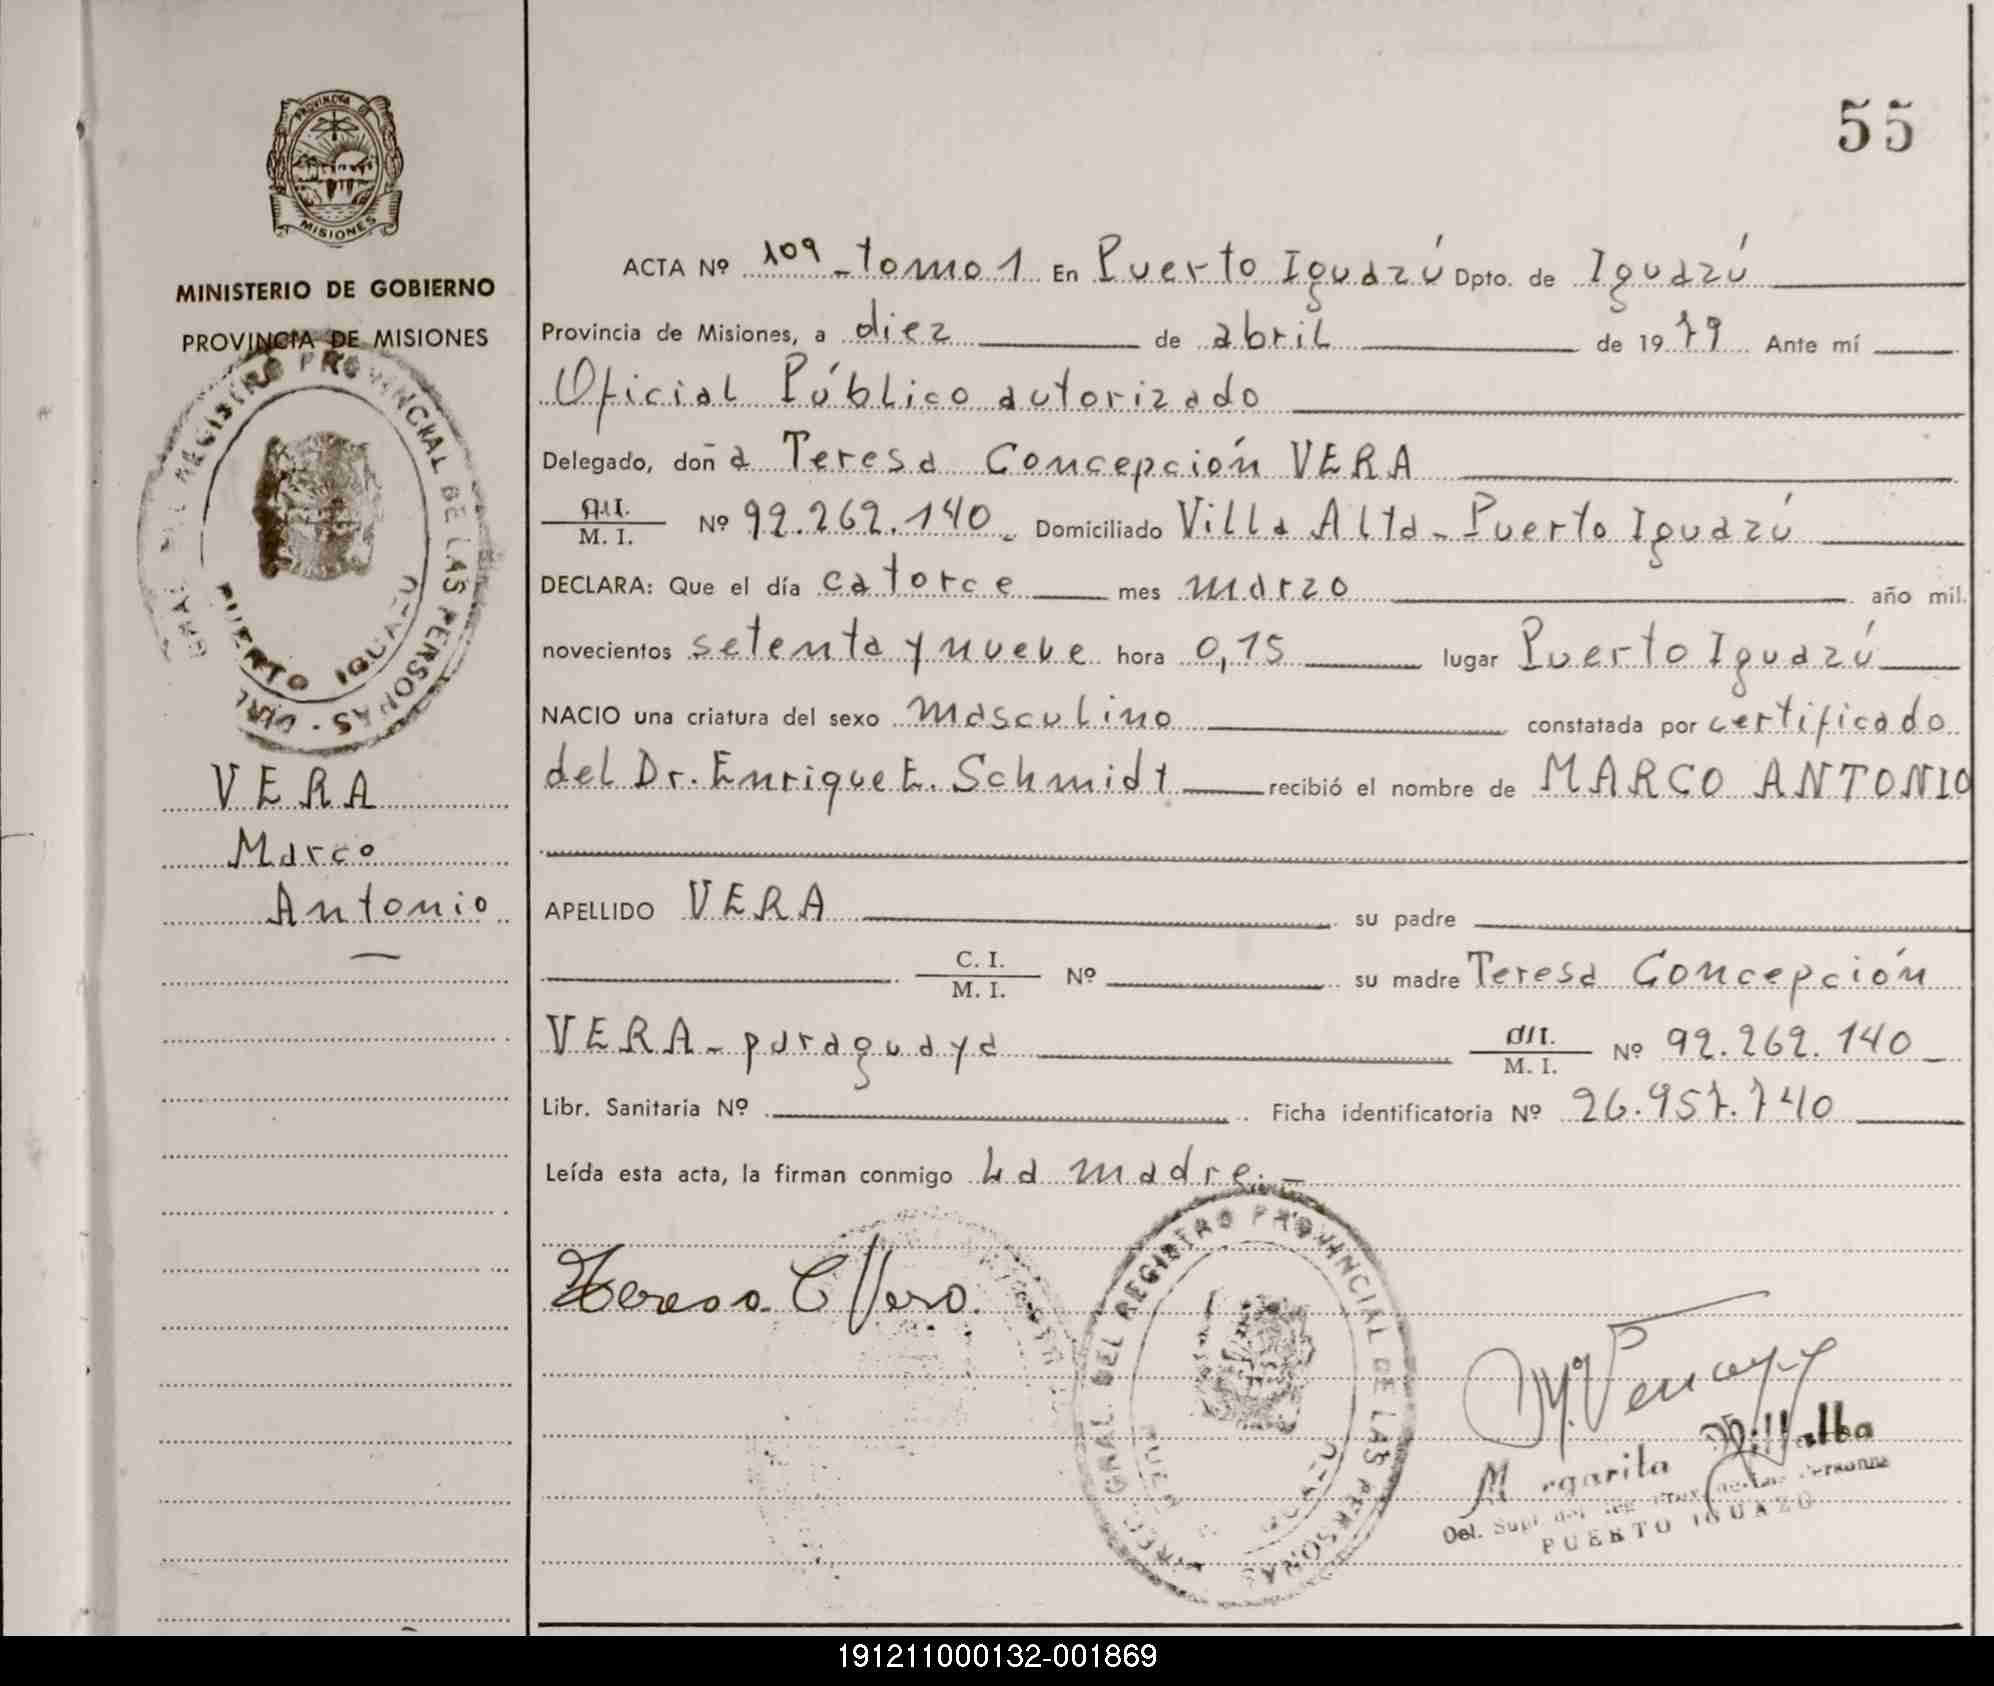 PROVINCIA DE
MISIONES
MINISTERIO DE GOBIERNO
PROVINCIA DE MISIONES
REGISTRO PROVINCIAL DE LAS PERSONAS
PUERTO IGUAZU
VERA
Marco
Antonio
55
ACTA Nº 109 - tomo 1 En Puerto Iguazú Dpto. de Iguazú
Provincia de Misiones, a diez de abril de 1979 Ante mí
Oficial Público autorizado
Delegado, doña Teresa Concepción VERA
M. I. Nº 92.262.140 Domiciliado Villa Alta - Puerto Iguazú
DECLARA: Que el día catorce mes marzo año mil
novecientos setenta y nueve hora 0,15 lugar Puerto Iguazú
NACIO una criatura del sexo masculino constatada por certificado
del Dr. Enrique E. Schmidt recibió el nombre de MARCO ANTONIO
APELLIDO VERA su padre
C. I.
M. I. Nº su madre Teresa Concepción
VERA - paraguaya M. I. Nº 92.262.140
Libr. Sanitaria Nº Ficha identificatoria Nº 26.957.740
Leída esta acta, la firman conmigo La madre. -
Teresa C Vera
DEL REGISTRO PROVINCIAL DE LAS PERSONAS
Margarita Villalba
PUERTO IGUAZU
191211000132-001869